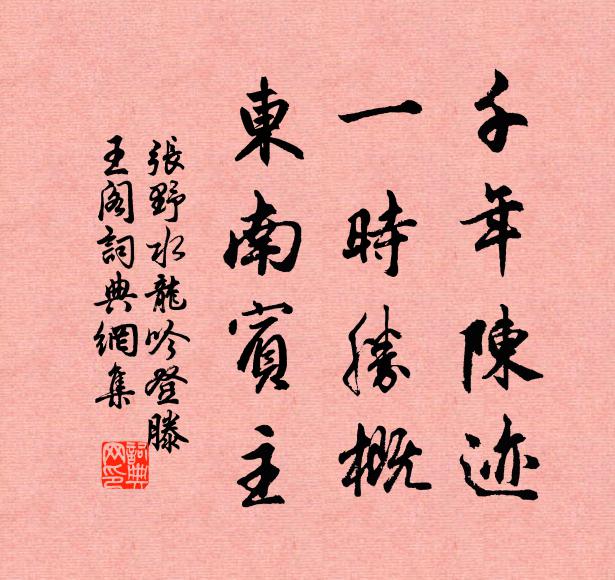 千年陳迹
一時勝概
東南賓主
張野水龍吟登滕
王阁詞典網集
詞典网印